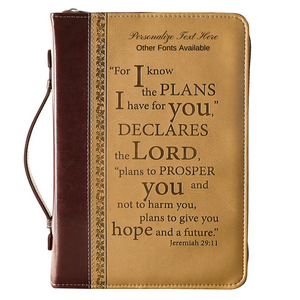 Personalize Text Here
Other Fonts Available
“For I know
the PLANS
I have for you,”
DECLARES
the LORD,
“plans to PROSPER
you and
not to harm you,
plans to give you
hope and a future.”
Jeremiah 29:11